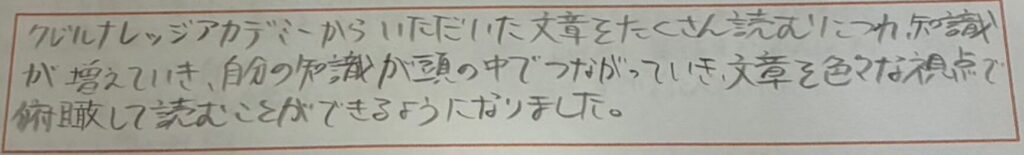 クレルナレッジアカデミーからいただいた文章をたくさん読むにつれ、知識
が増えていき、自分の知識が頭の中でつながっていき、文章を色々な視点で
俯瞰して読むことができるようになりました。